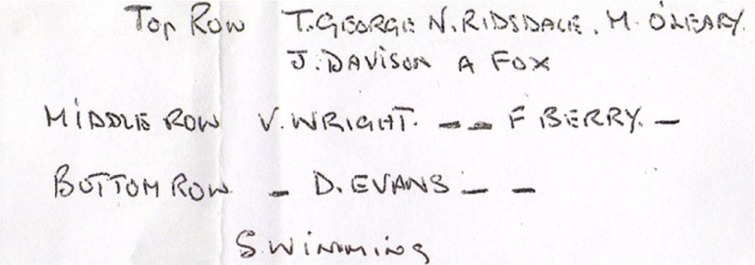 Top Row T. GEORGE N. RIDSDALE. M. O'LEARY.
J. DAVISON A FOX
MIDDLE ROW V. WRIGHT. - - F BERRY. -
BOTTOM ROW - D. EVANS - -
SWIMMING